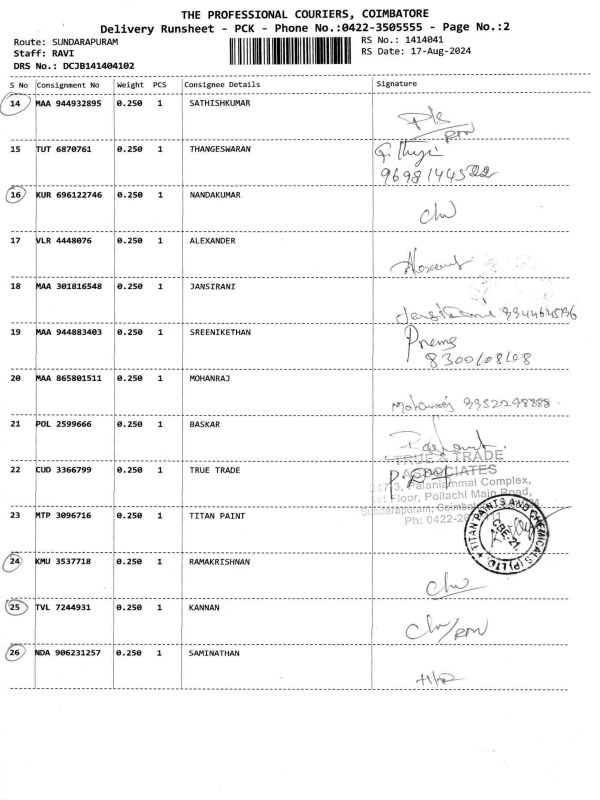 THE PROFESSIONAL COURIERS, COIMBATORE
Delivery Runsheet - PCK - Phone No.:0422-3505555 - Page No.:2
Route: SUNDARAPURAM
Staff: RAVI
DRS No.: DCJB141404102
RS No.: 1414041
RS Date: 17-Aug-2024
S No Consignment No Weight PCS Consignee Details Signature
14 MAA 944932895 0.250 1 SATHISHKUMAR
15 TUT 6870761 0.250 1 THANGESWARAN
9698144522
16 KUR 696122746 0.250 1 NANDAKUMAR
17 VLR 4448076 0.250 1 ALEXANDER
18 MAA 301816548 0.250 1 JANSIRANI
19 MAA 944883403 0.250 1 SREENIKETHAN
Prema
20 MAA 865801511 0.250 1 MOHANRAJ
Mohanraj
21 POL 2599666 0.250 1 BASKAR
22 CUD 3366799 0.250 1 TRUE TRADE
TRUE & TRADE
ASSOCIATES
Palaniammal Complex,
1st Floor, Pollachi Main Road,
Sundarapuram, Coimbatore
Ph: 0422-2
23 MTP 3096716 0.250 1 TITAN PAINT
TITAN PAINTS AND CHEMICALS (P) LTD.
CBE-21.
24 KMU 3537718 0.250 1 RAMAKRISHNAN
25 TVL 7244931 0.250 1 KANNAN
26 NDA 906231257 0.250 1 SAMINATHAN